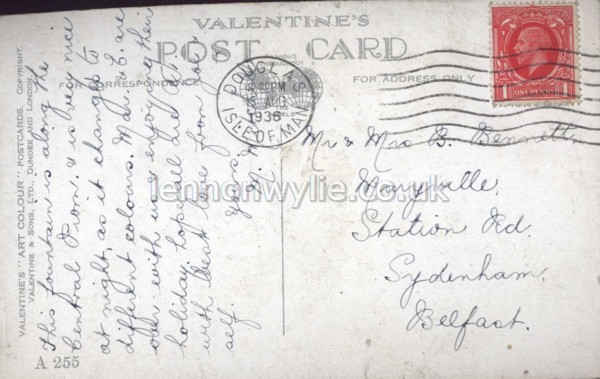 VALENTINE'S
POST CARD
FOR CORRESPONDENCE
FOR ADDRESS ONLY
DOUGLAS
ISLE OF MAN
1936
ONE PENNY
VALENTINE'S "ART COLOUR" POSTCARDS. COPYRIGHT.
VALENTINE & SONS, LTD., DUNDEE AND LONDON.
This fountain is along the
Central Prom. & is very nice
at night, as it changes to
different colours. Ma & E. are
over with us enjoying their
holiday, hope all are well
with best love from your
self.
Yours.
Mr & Mrs B. Bennett
Maryville,
Station Rd.
Sydenham.
Belfast.
A 255
lennonwylie.co.uk